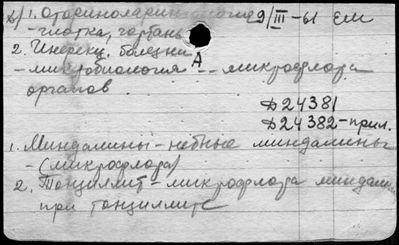 д/1. Оториноларингология 9/III-61 ЕМ
- глотка, гортань
2. Инфекц. болезни
А
- микробиология -- микрофлора
органов
Д24381
Д24382-прил.
1. Миндалины - небные миндалины
- (микрофлора)
2. Тонзиллит - микрофлора миндалин
при тонзиллите